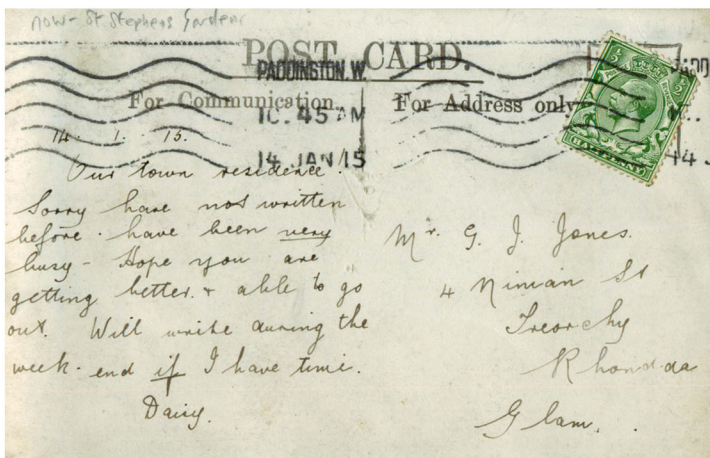 now - St Stephens Gardens
POST CARD.
PADDINGTON. W.
For Communication
For Address only
10. 45 AM
14 JAN 15
½ ½
HALFPENNY
14. 1. 15.
"Our town residence."
Sorry have not written
before. have been very
busy - Hope you are
getting better. + able to go
out. Will write during the
week-end if I have time.
Daisy.
Mr. G. J. Jones.
4 Ninian St
Treorchy
Rhondda
Glam.